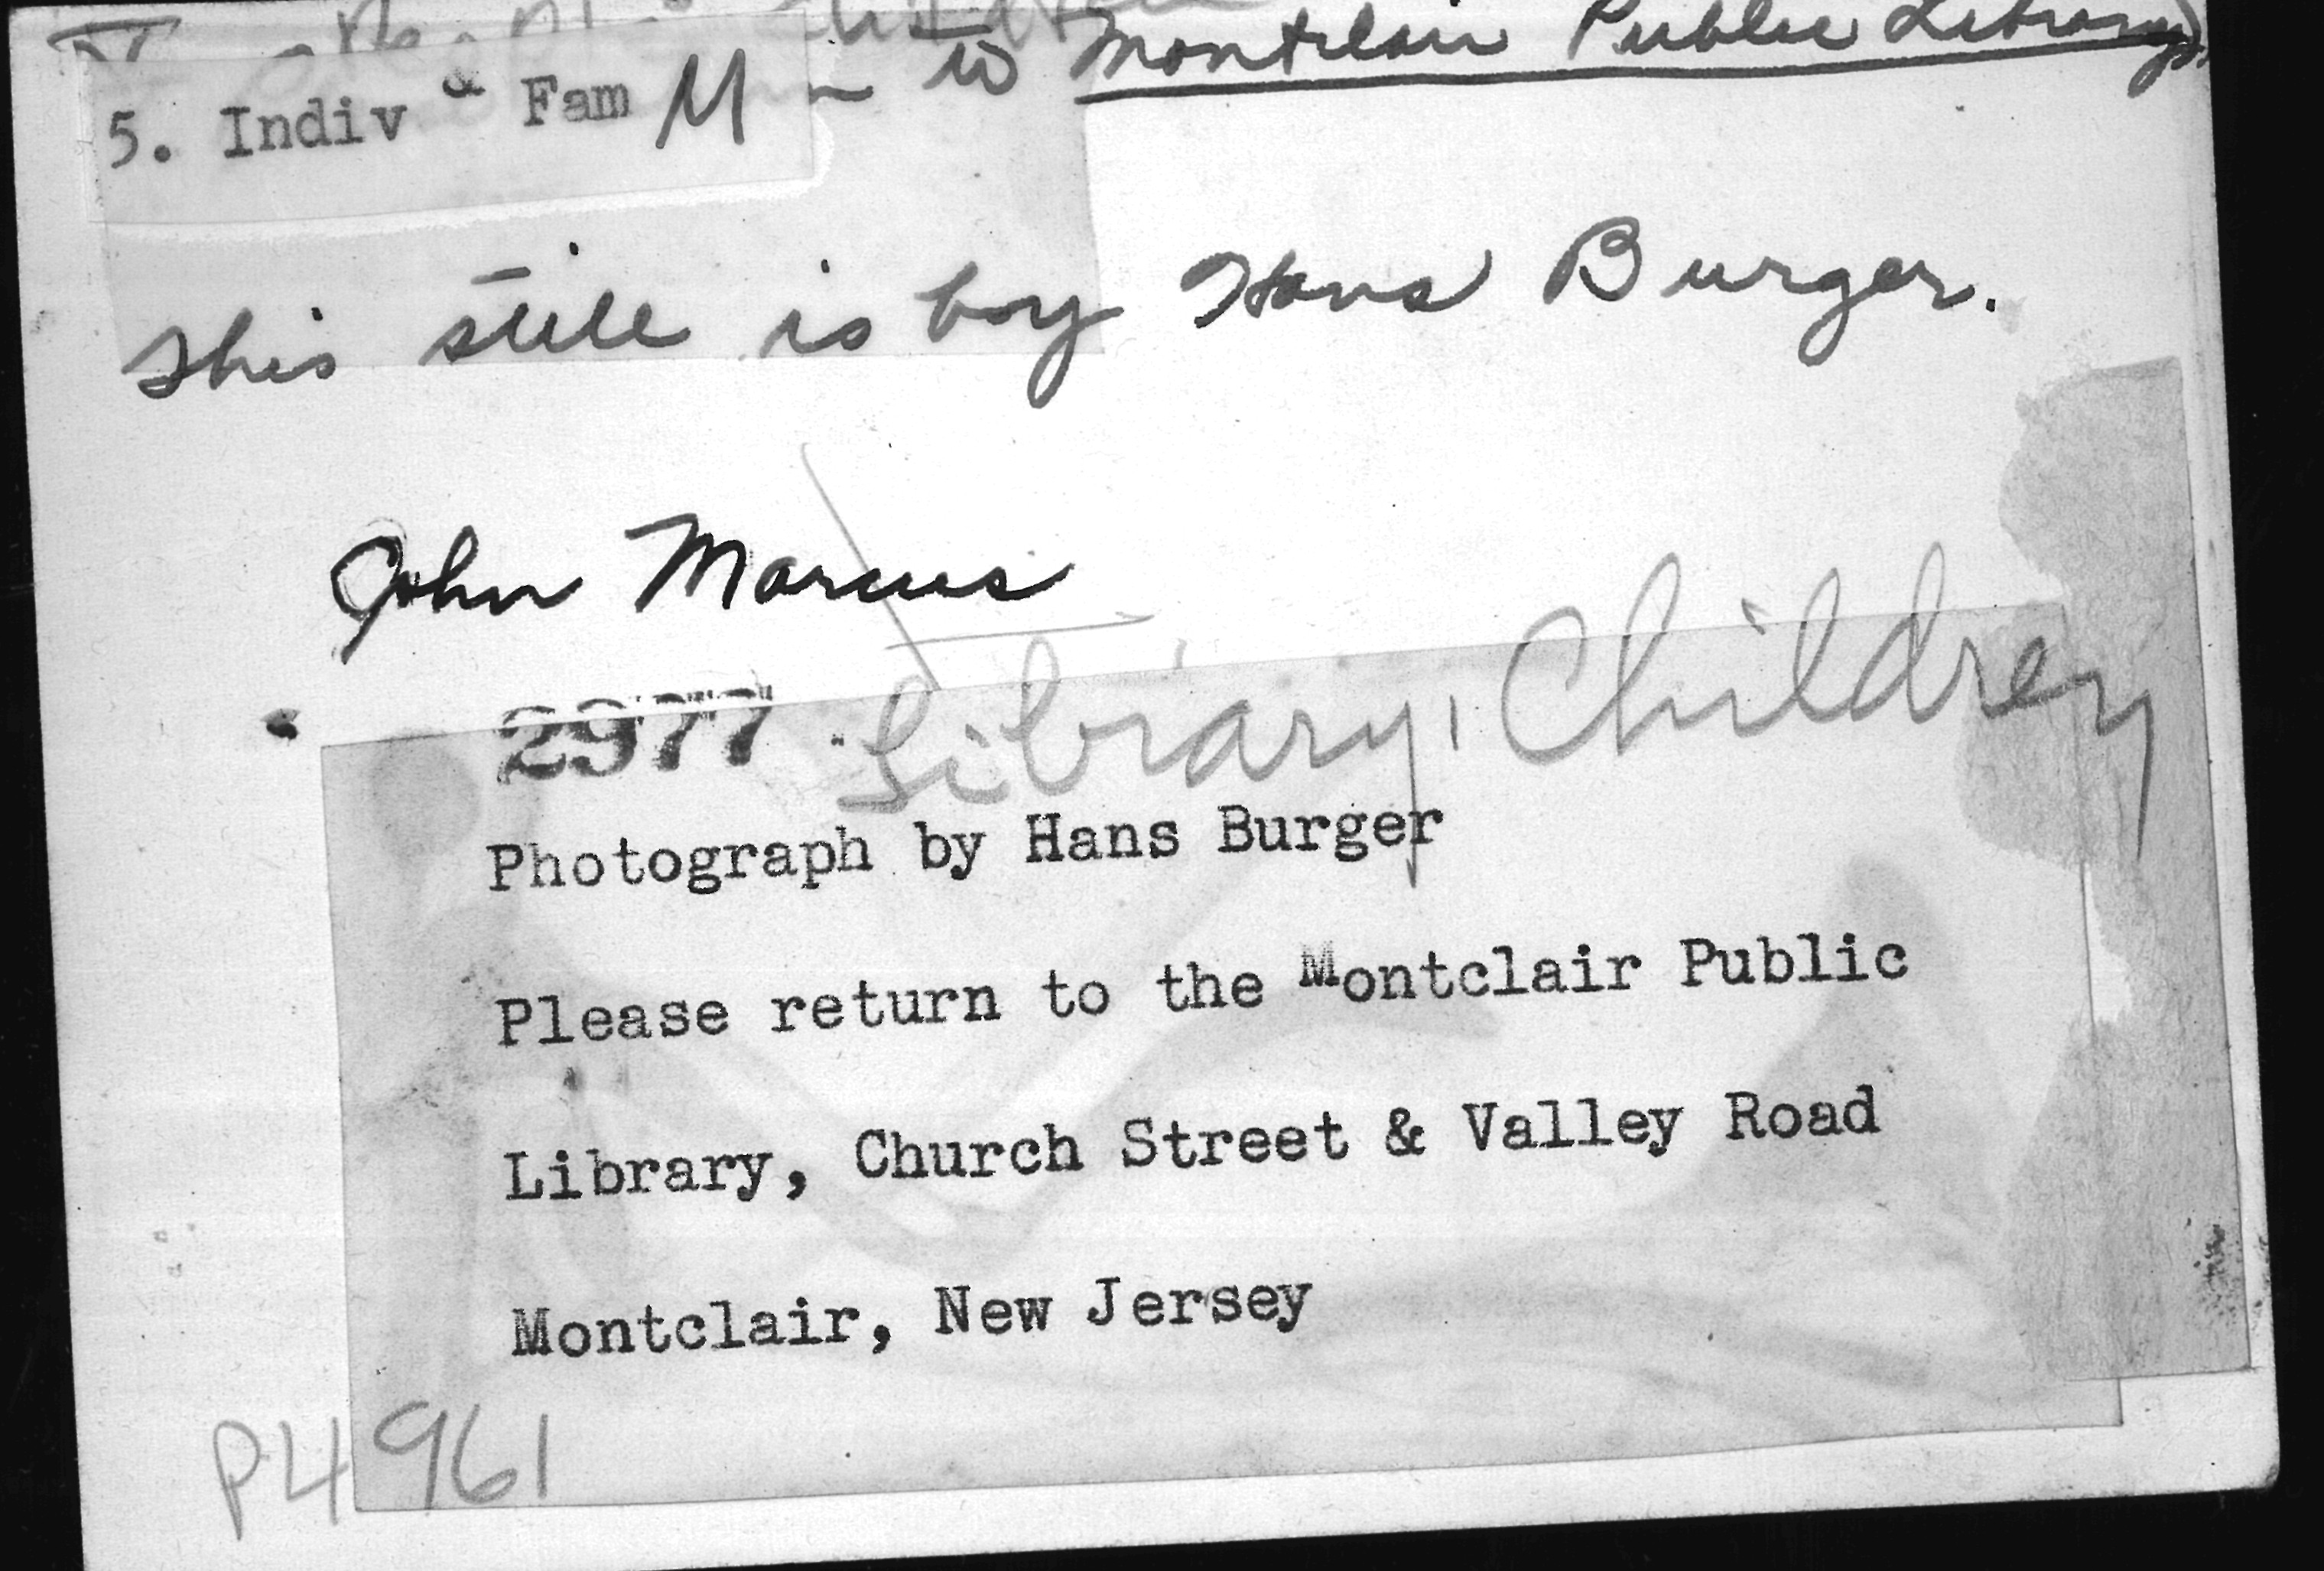 to Montclair Public Library).
5. Indiv & Fam M
This still is by Hans Burger.
John Marcus
2977
Library, Children
Photograph by Hans Burger
Please return to the Montclair Public
Library, Church Street & Valley Road
Montclair, New Jersey
P4961